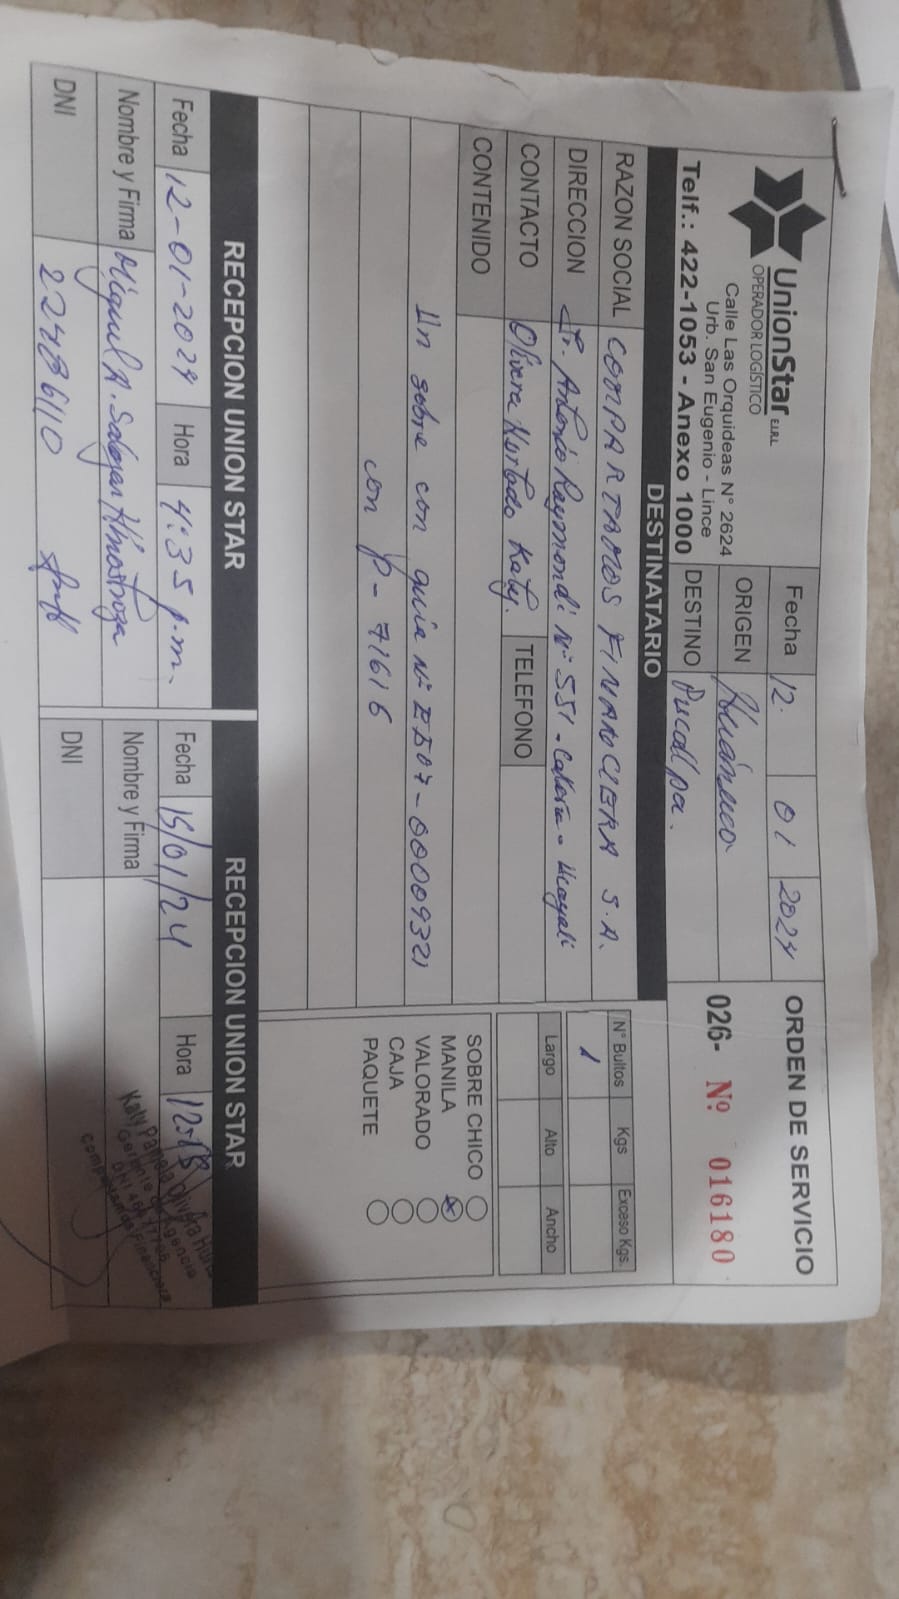 UnionStar E.I.R.L
OPERADOR LOGÍSTICO
Calle Las Orquideas N° 2624
Urb. San Eugenio - Lince
Telf.: 422-1053 - Anexo 1000
Fecha 12 01 2024
ORIGEN Huánuco
DESTINO Pucallpa.
ORDEN DE SERVICIO
026- Nº 016180
DESTINATARIO
RAZON SOCIAL COMPARTAMOS FINANCIERA S.A.
DIRECCION Jr. Antonio Raymondi N° 551 - Callería - Ucayali
CONTACTO Olivera Hurtado Katy. TELEFONO
CONTENIDO
Un sobre con guía N° EE07-00009321
con P- 71616
N° Bultos Kgs Exceso Kgs.
1
Largo Alto Ancho
SOBRE CHICO
MANILA x
VALORADO
CAJA
PAQUETE
RECEPCION UNION STAR
Fecha 12-01-2024 Hora 4:35 p.m.
Nombre y Firma Miguel A. Salazar Hinostroza
DNI 22486110
RECEPCION UNION STAR
Fecha 15/01/24 Hora
Nombre y Firma
DNI
Gerente de Agencia